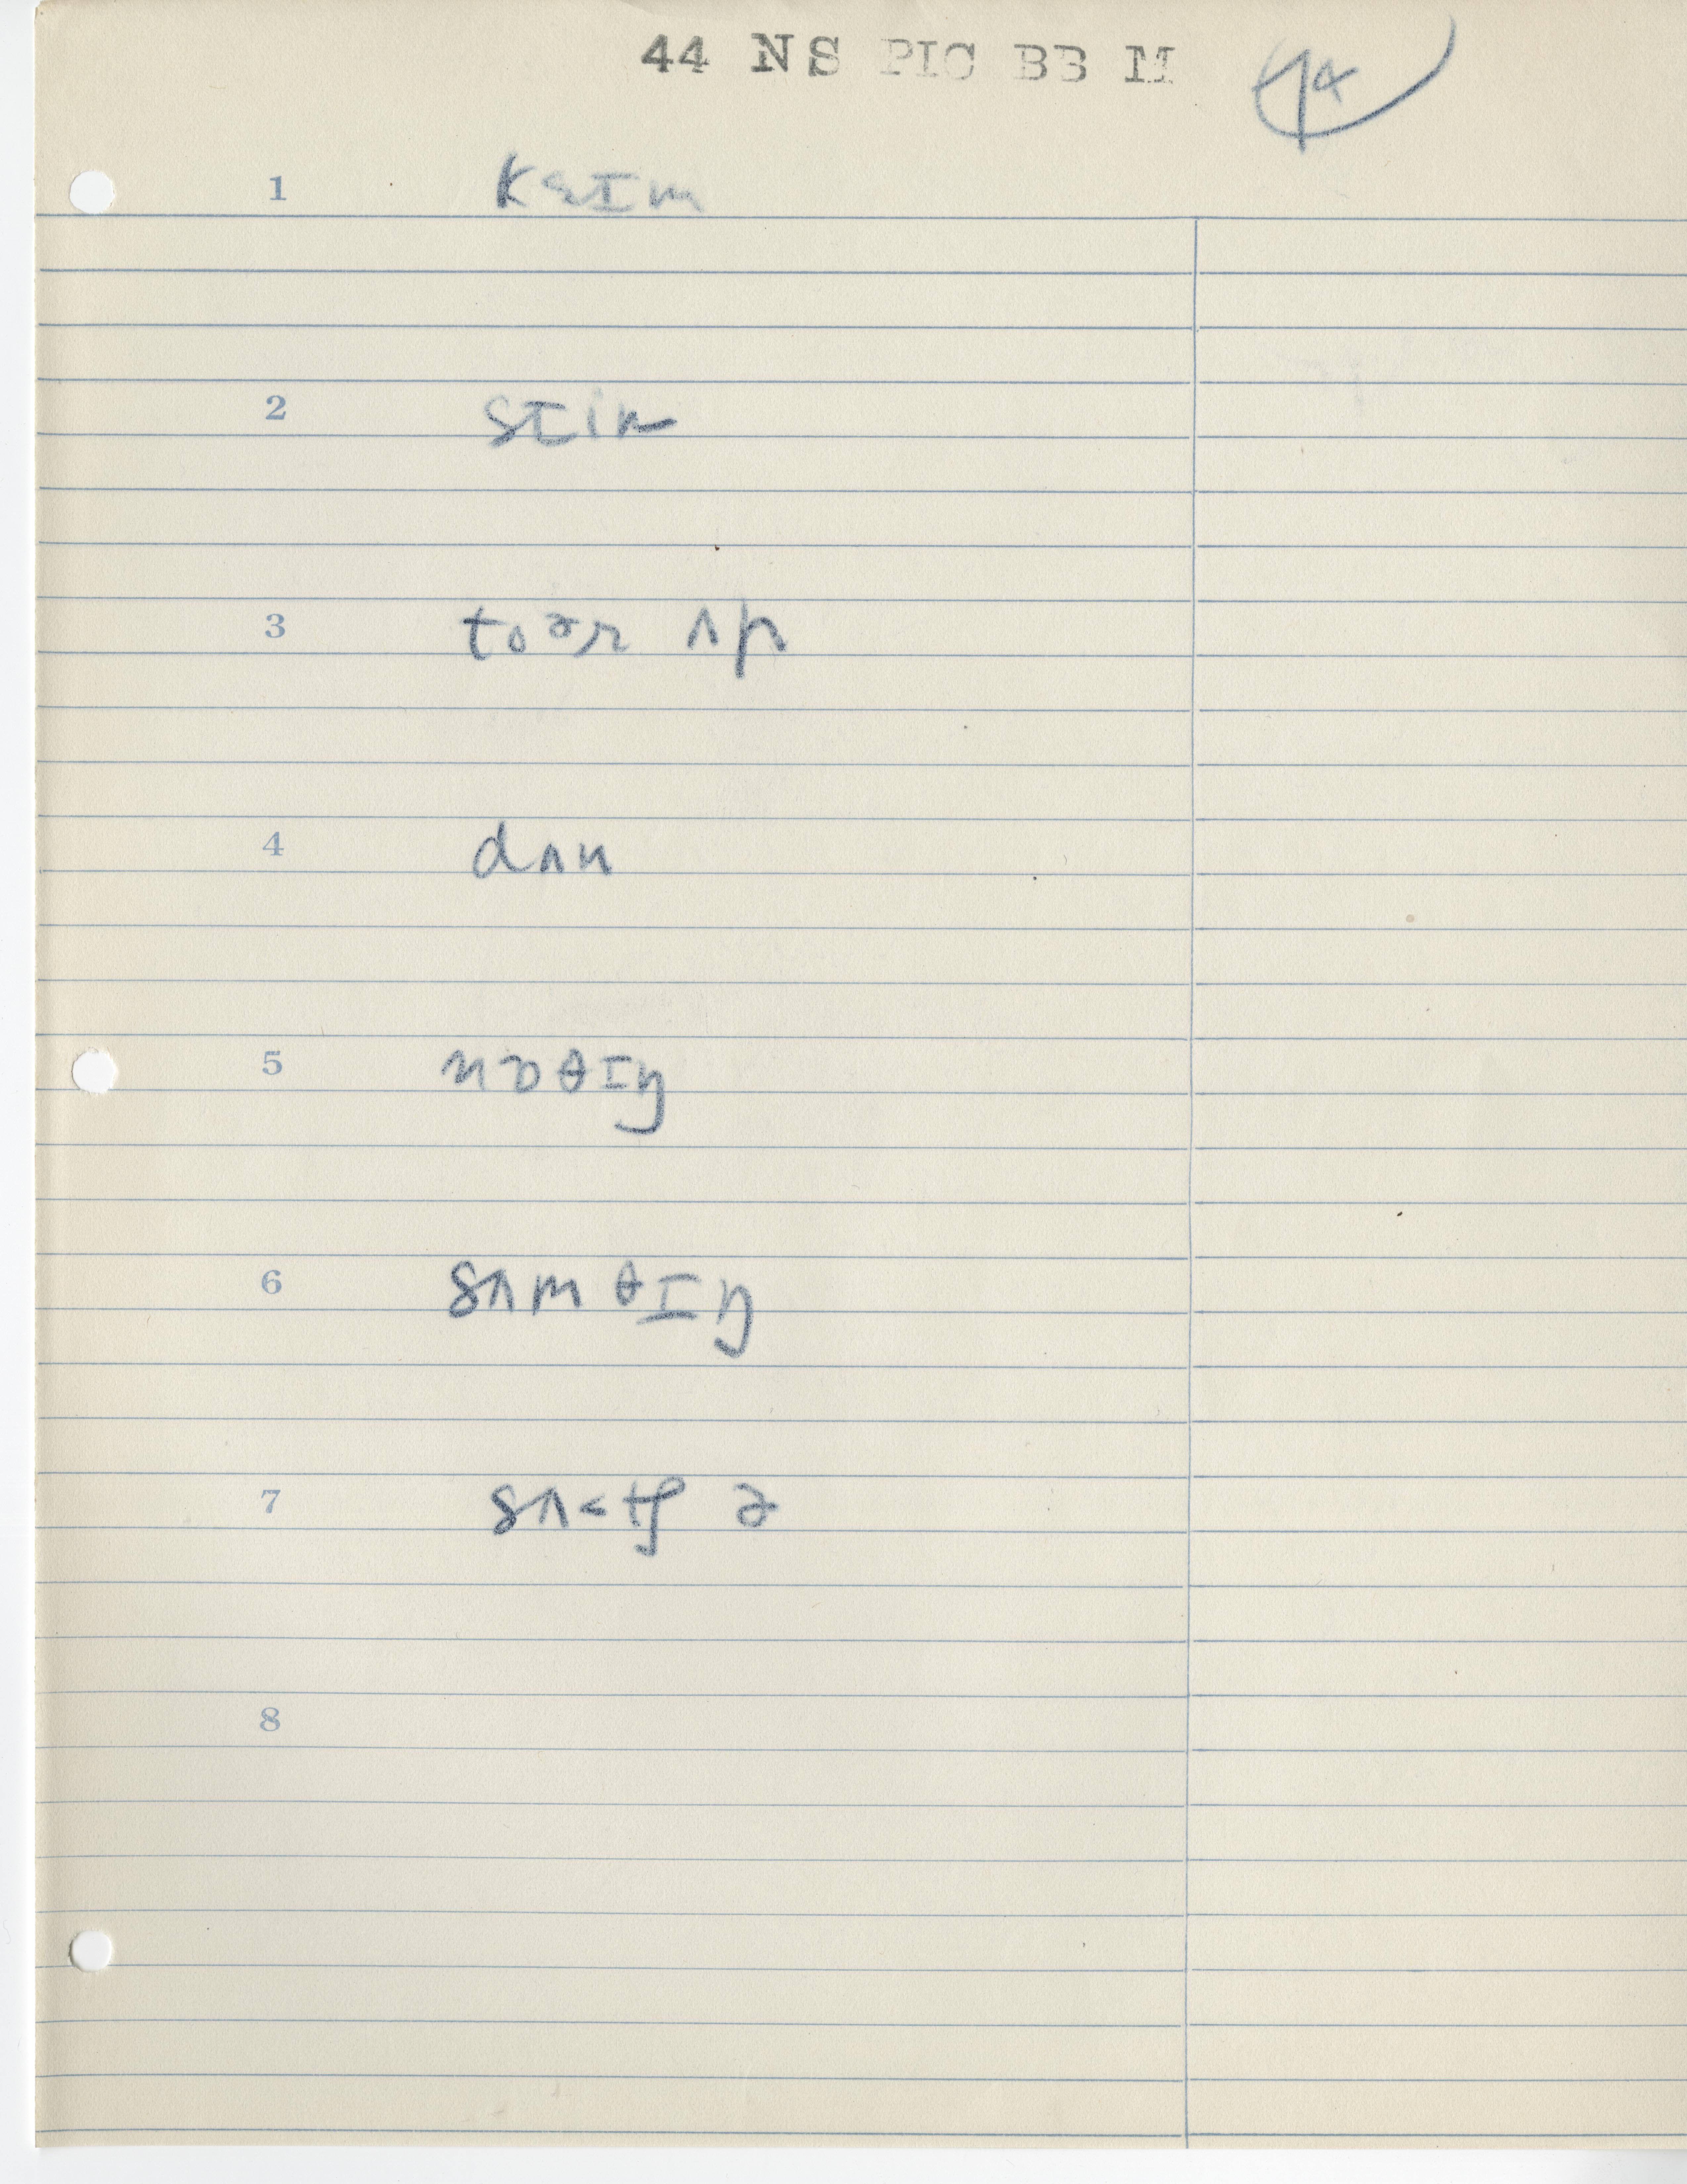 44 NS PIC BB M
1 kɛɪm
2 sɪin
3 toər ʌp
4 dʌn
5 nɔθɪŋ
6 sʌmθɪŋ
7 sʌtʃ ə
8